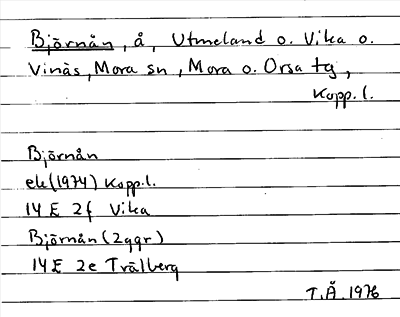 Björnån, å, Utmeland o. Vika o.
Vinäs, Mora sn, Mora o. Orsa tg,
Kopp.l.
Björnån
ek(1974) Kopp.l.
14 E 2f Vika
Björnån (2ggr)
14E 2e Trälberg
T.Å. 1976